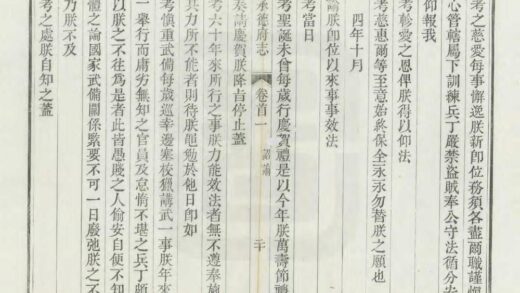 考之慈愛每事懈逸朕新即位務須各盡爾職謹慎
心管轄屬下訓練兵丁嚴禁盜賊奉公守法循分安
仰報我
考軫愛之恩俾朕得以仰法
考慈惠爾等至意始終保全永永勿替朕之願也
四年十月
諭朕即位以來事事效法
考當日
考聖誕未曾每歲行慶賀禮是以今年朕萬壽節禮
奏請慶賀朕降旨停止蓋
承德府志
卷首一
詔諭
二十
考六十年來所行之事朕力能效法者無不遵奉施
共力所不能者則待朕黽勉於他日即如
考慎重武備每歲巡幸邊塞校獵講武一事朕年來
一舉行而庸劣無知之官員及怠惰不堪之兵丁頗
以朕之不往為是者此皆愚賤之人偷安自便不知
體之論國家武備關係緊要不可一日廢弛朕之不
乃朕不及
考之處朕自知之蓋